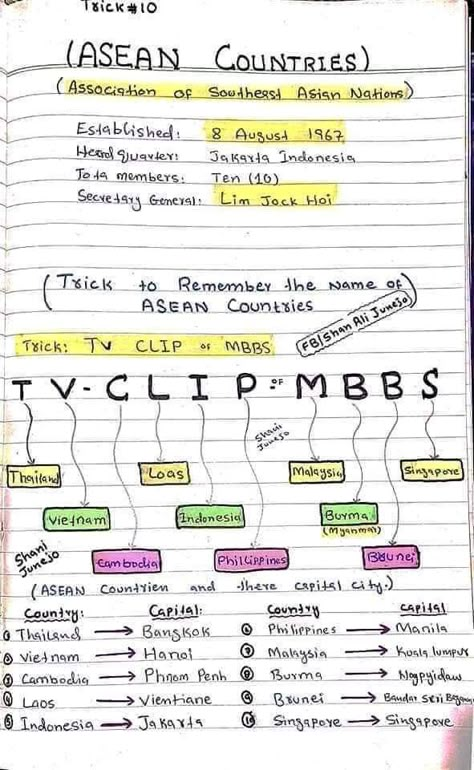 Trick #10
(ASEAN COUNTRIES)
(Association of Southeast Asian Nations)
Established: 8 August 1967
Head quarter: Jakarta Indonesia
Tota members: Ten (10)
Secretary General: Lim Jock Hoi
(Trick to Remember the Name of
ASEAN Countries
FB/Shan Ali Junejo)
Trick: TV CLIP of MBBS
T V - C L I P of M B B S
Shani
Junejo
Thailand Loas Malaysia Singapore
Vietnam Indonesia Burma
(Myanmar)
Shani
Junejo
Cambodia Phillippines Brunei
(ASEAN Countrien and there capital city.)
Country: Capital: Country Capital
1 Thailand → Bangkok 6 Philippines → Manila
2 Vietnam → Hanoi 7 Malaysia → Kuala lumpur
3 Cambodia → Phnom Penh 8 Burma → Naypyidaw
4 Laos → Vientiane 9 Brunei → Bandar Seri Begawan
5 Indonesia → Jakarta 10 Singapore → Singapore